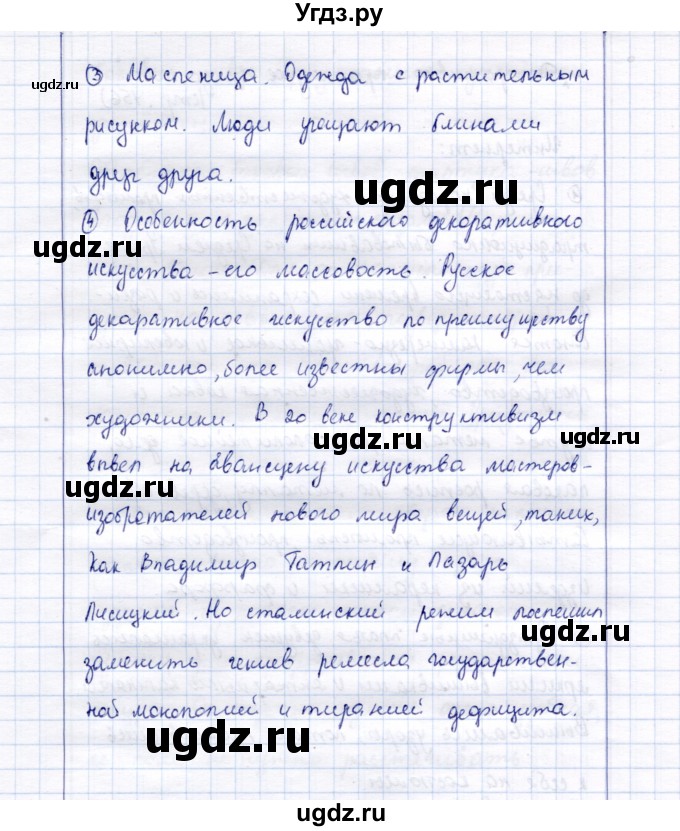 Угдз.ру
③ Масленица. Одежда с растительным
рисунком. Люди угощают блинами
друг друга.
④ Особенность российского декоративного
искусства - его массовость. Русское
декаративное искусство по преимуществу
анонимно, более известны фирмы, чем
художники. В 20 веке конструктивизм
ввел на авансцену искусства мастеров-
изобретателей нового мира вещей, таких,
как Владимир Татлин и Лазарь
Лисицкий. Но сталинский режим поспешил
заменить гениев ремесла государствен-
ной монополией и тиранией дефицита.
ugdz.ru
ugdz.ru
ugdz.ru
ugdz.ru
ugdz.ru
ugdz.ru
ugdz.ru
ugdz.ru
ugdz.ru